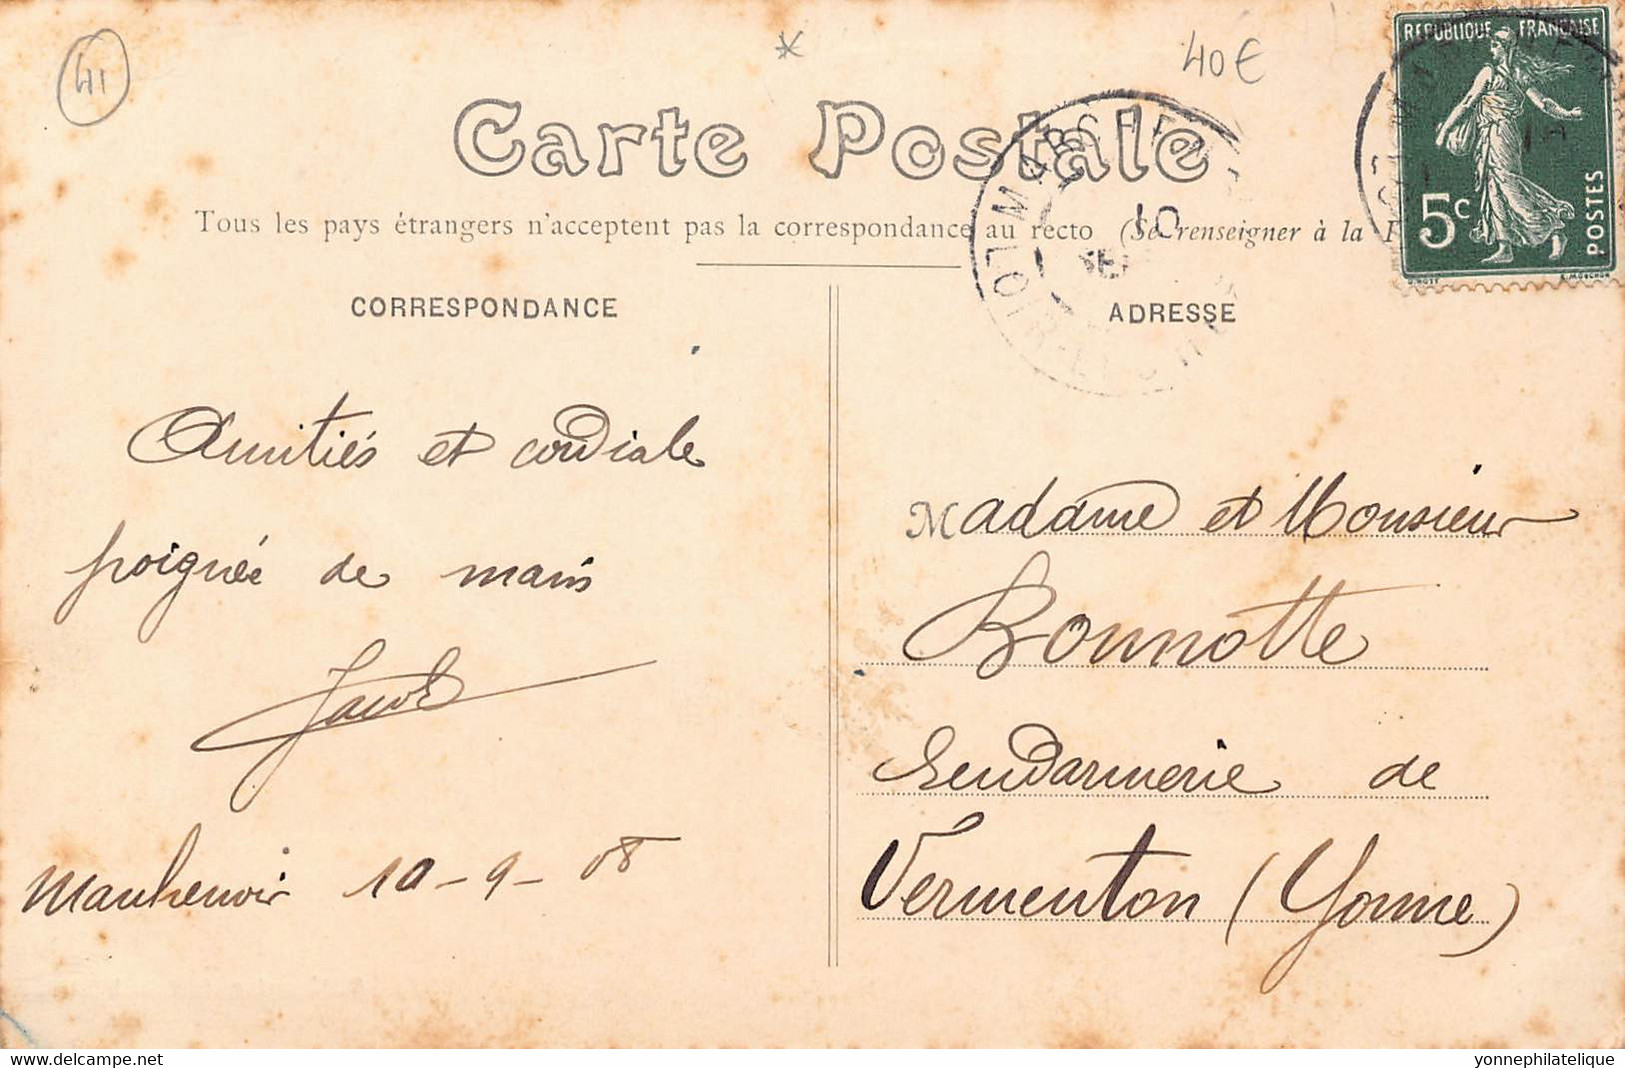 41
*
40€
RÉPUBLIQUE FRANÇAISE
5c
POSTES
Carte Postale
Tous les pays étrangers n'acceptent pas la correspondance au recto (Se renseigner à la
10
CORRESPONDANCE
ADRESSE
Amitiés et cordiale
poignée de mains
Jacob
Marchenoir 10-9-08
Madame et Monsieur
Bonnotte
Gendarmerie de
Vermenton (Yonne)
delcampe.net
yonnephilatelique